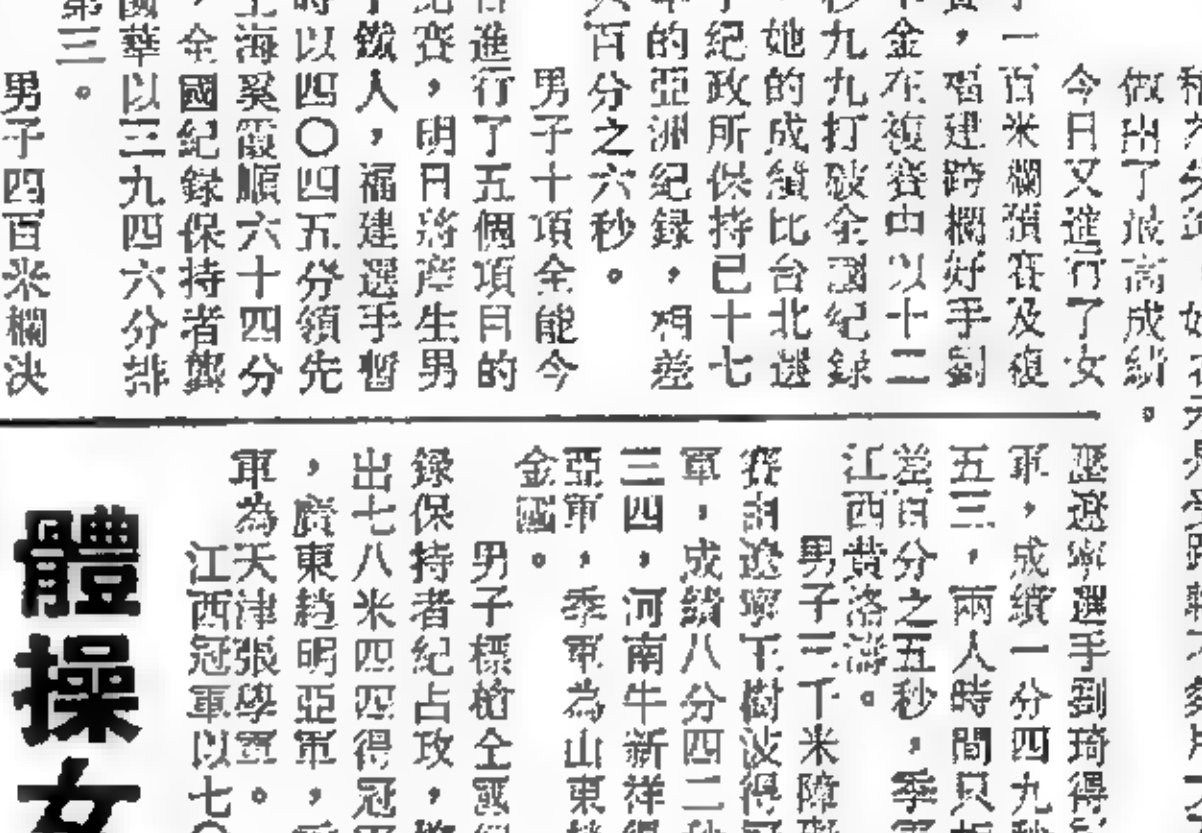 做出了最高成績。
今日又進行了女
一百米欄預賽及複
,福建跨欄好手劉
金在複賽中以十二
秒九九打破全國紀錄
她的成績比台北選
紀政所保持已十七
的亞洲紀錄,相差
百分之六秒。
男子十項全能今
進行了五個項目的
賽,明日將產生男
鐵人,福建選手暫
時以四〇四五分領先
上海奚霞順六十四分
,全國紀錄保持者龔
國華以三九四六分排
第三。
男子四百米欄決
壓遼寧選手劉琦得
軍,成績一分四九秒
五三,兩人時間只
差百分之五秒,季軍
江西黃洛濤。
男子三千米障
賽由遼寧王樹波得冠
軍,成績八分四二秒
三四,河南牛新祥得
亞軍,季軍為山東
金國。
男子標槍全國
錄保持者紀占攻,
出七八米四四得冠
,廣東趙明亞軍,
軍為天津張學軍。
江西冠軍以七〇
體操女